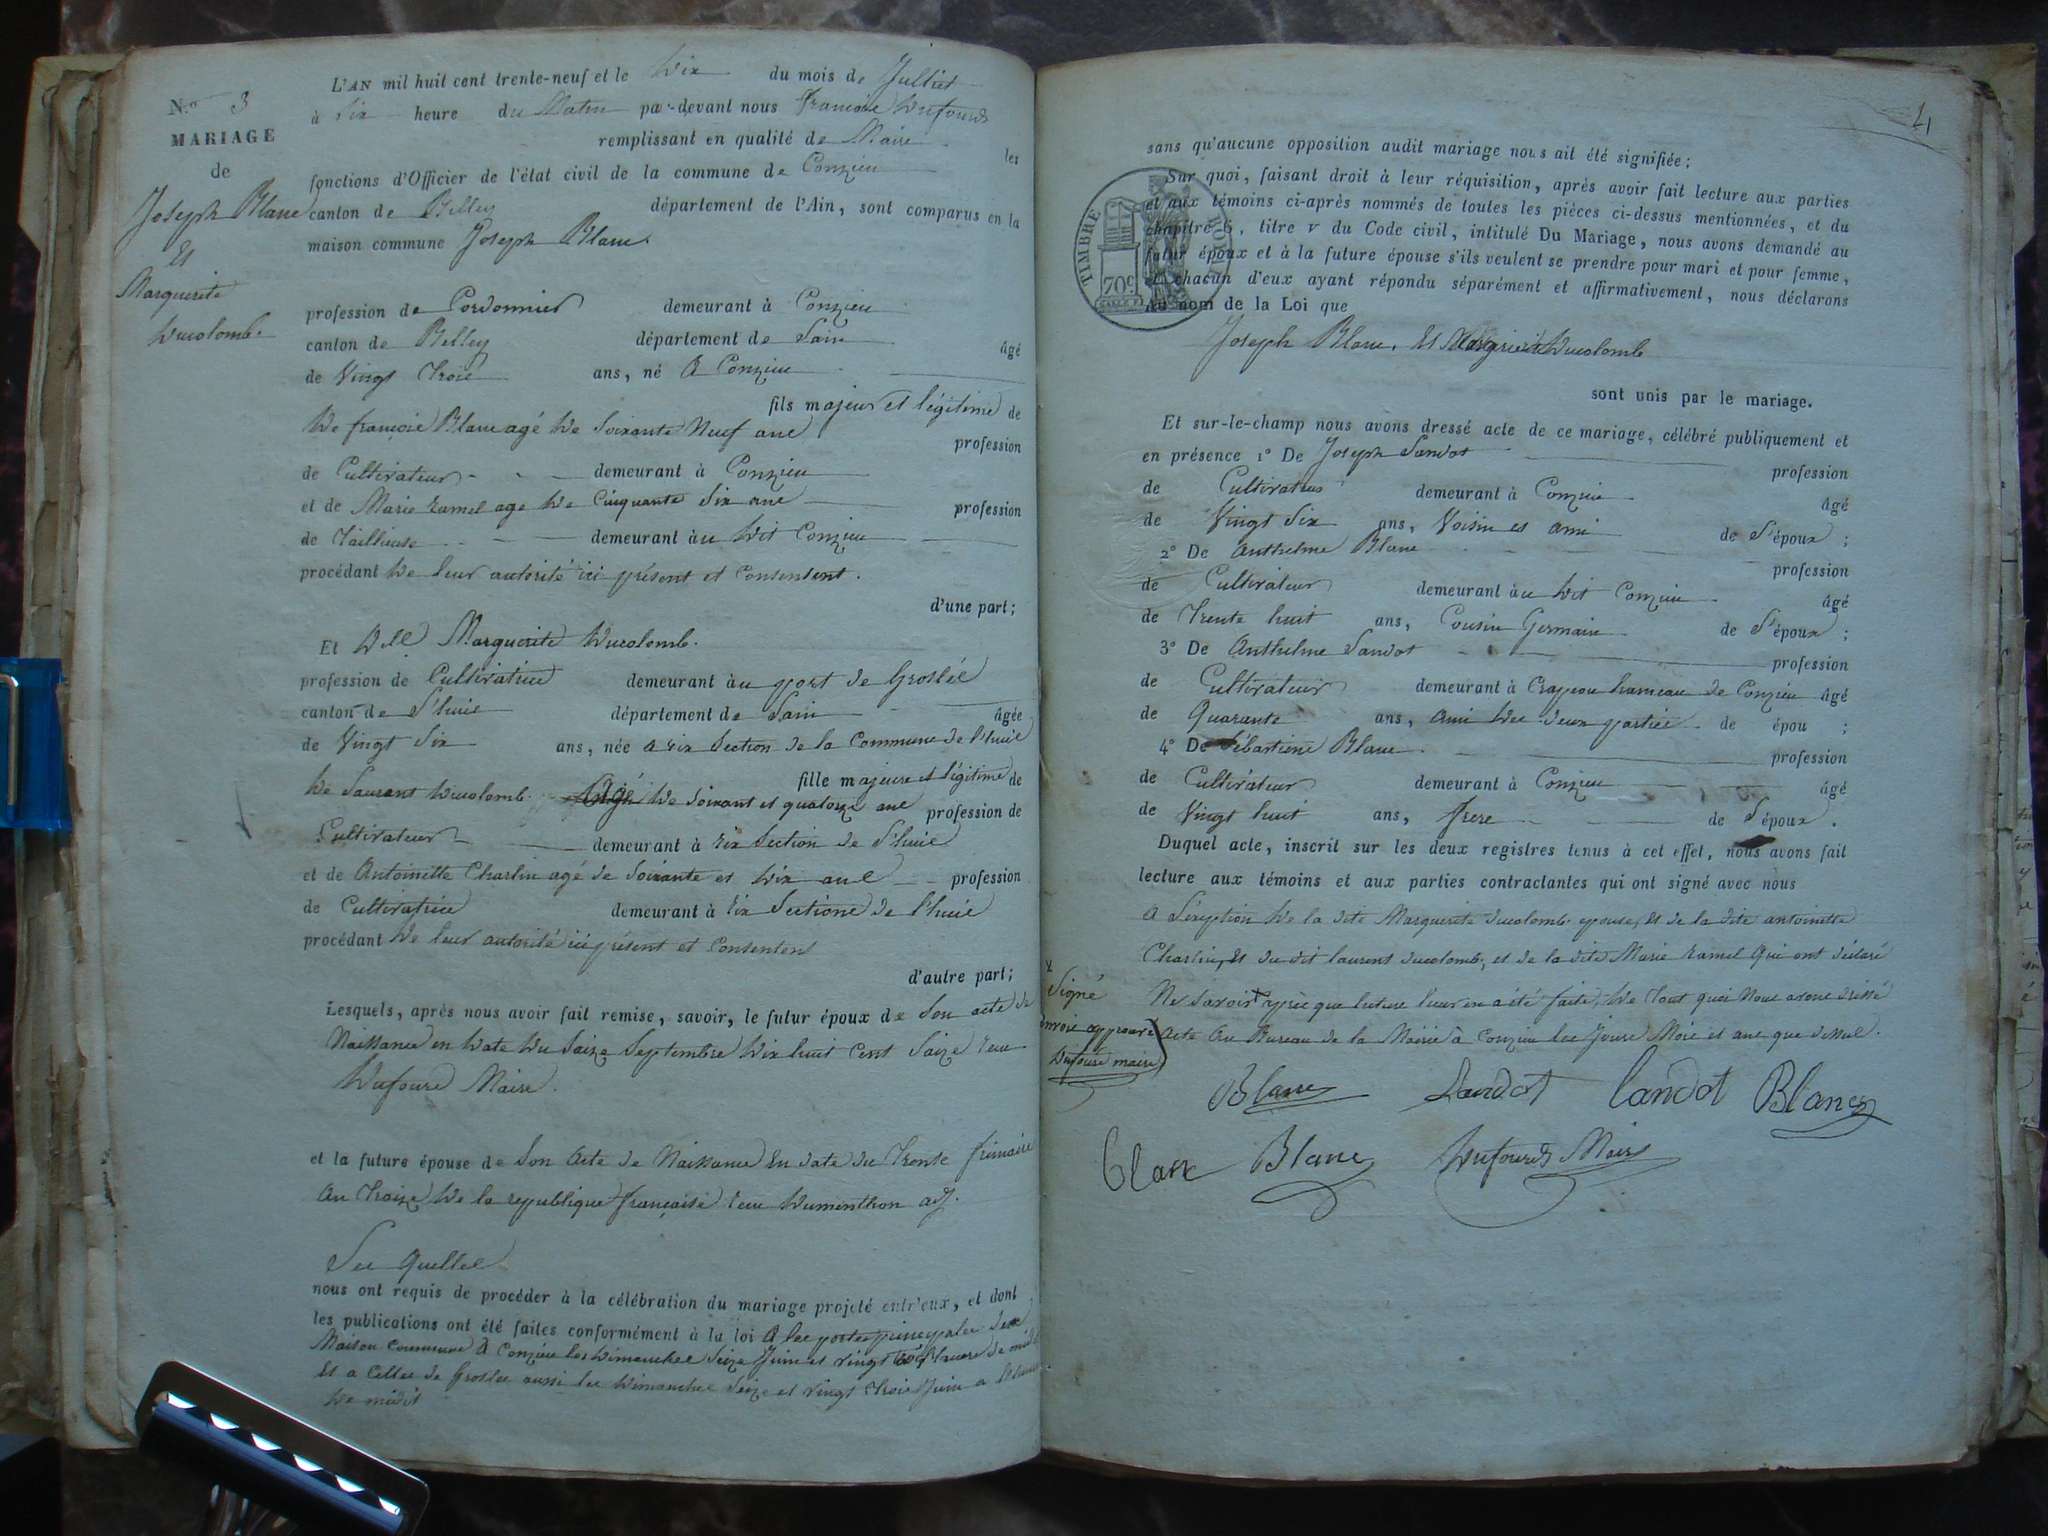 L'AN mil huit cent trente-neuf et le Dix du mois de Julliet
N.o 3
à Six heure du Matin par-devant nous françoise Dufourd
MARIAGE
remplissant en qualité de Maire les
de
fonctions d'Officier de l'état civil de la commune de Conzieu
Joseph Blanc
canton de Belley département de l'Ain, sont comparus en la
Et
maison commune Joseph Blanc.
Marguerite
Ducolomb.
profession de Cordonnier demeurant à Conzieu
canton de Belley département de Lain âgé
de Vingt Trois ans, né A Conzieu
fils majeur et légitime de
De françoie Blanc agé De Soixante Neuf ane profession
de Cultivateur demeurant à Conzieu
et de Marie ramel age De Cinquante Six ane profession
de Tailleuse demeurant àu Dit Conzieu
procédant De leur autorité ici présent et Consentent.
d'une part;
Et Dell Marguerite Ducolomb.
profession de Cultivatrice demeurant àu port de Groslée
canton de L'huie département de Lain âgée
de Vingt Six ans, née a rix Section de la Commune de l'huie
fille majeure et légitime de
De Laurant Ducolomb. Agé De Soixant et quatorze ane profession de
Cultivateur demeurant à rix Section de L'huie
et de Antoinette Charlin agé de Soixante et Dix ane profession
de Cultivatrice demeurant à rix Sectione de l'huie
procédant De leur autorité ici présent et Consenten
d'autre part;
Lesquels, après nous avoir fait remise, savoir, le futur époux de Son acte de
Naissance en Date Du Saize Septembre Dix huit Cent Saize
Dufourd Maire.
et la future épouse de Son Acte de Naissance En date du Trente frimaire
An Traize De la republique française Dumenthon adj.
Les quelles
nous ont requis de procéder à la célébration du mariage projeté entr'eux, et dont
les publications ont été faites conformément à la loi A les portes principales
Maison Commune A Conzieu les Dimanches Seize Juin et vingt trois
Et a Celles de Groslee aussi les Dimanches Seize et vingt trois Juin a
De midit
4
sans qu'aucune opposition audit mariage nous ait été signifiée;
Sur quoi, faisant droit à leur réquisition, après avoir fait lecture aux parties
et aux témoins ci-après nommés de toutes les pièces ci-dessus mentionnées, et du
chapitre 6, titre v du Code civil, intitulé Du Mariage, nous avons demandé au
futur époux et à la future épouse s'ils veulent se prendre pour mari et pour femme,
et chacun d'eux ayant répondu séparément et affirmativement, nous déclarons
Au nom de la Loi que
TIMBRE ROYAL
70c.
Joseph Blanc. Et Marguerite Ducolomb
sont unis par le mariage.
Et sur-le-champ nous avons dressé acte de ce mariage, célébré publiquement et
en présence 1° De Joseph Landot profession
de Cultivateur demeurant à Conzieu âgé
de Vingt Six ans, Voisin et ami de L'époux;
2° De Anthelme Blanc profession
de Cultivateur demeurant àu Dit Conzieu âgé
de Trente huit ans, Cousin Germain de L'époux;
3° De Anthelme Landot profession
de Cultivateur demeurant à Crapeou hameau de Conzieu âgé
de Quarante ans, Ami Des deux partiee de épou;
4° De Sébastiene Blanc profession
de Cultivateur demeurant à Conzieu âgé
de Vingt huit ans, frere de L'époux.
Duquel acte, inscrit sur les deux registres tenus à cet effet, nous avons fait
lecture aux témoins et aux parties contractantes qui ont signé avec nous
A L'éxeption De la dite Marguerite ducolomb epouse, Et de la dite antoinette
Charlin, Et du dit laurent ducolomb, et de la dite Marie ramel Qui ont déclaré
Ne Savoir x après que lecture leur en a été faite, De Tout quoi Nous avons dressé
acte Au Bureau de la Mairie à Conzieu les Joure Moie et ane que dessue.
x
Signé
renvoie approuvé
Dufourd maire
Blanc Landot Landot Blanc
blanc Blanc Dufourd Maire